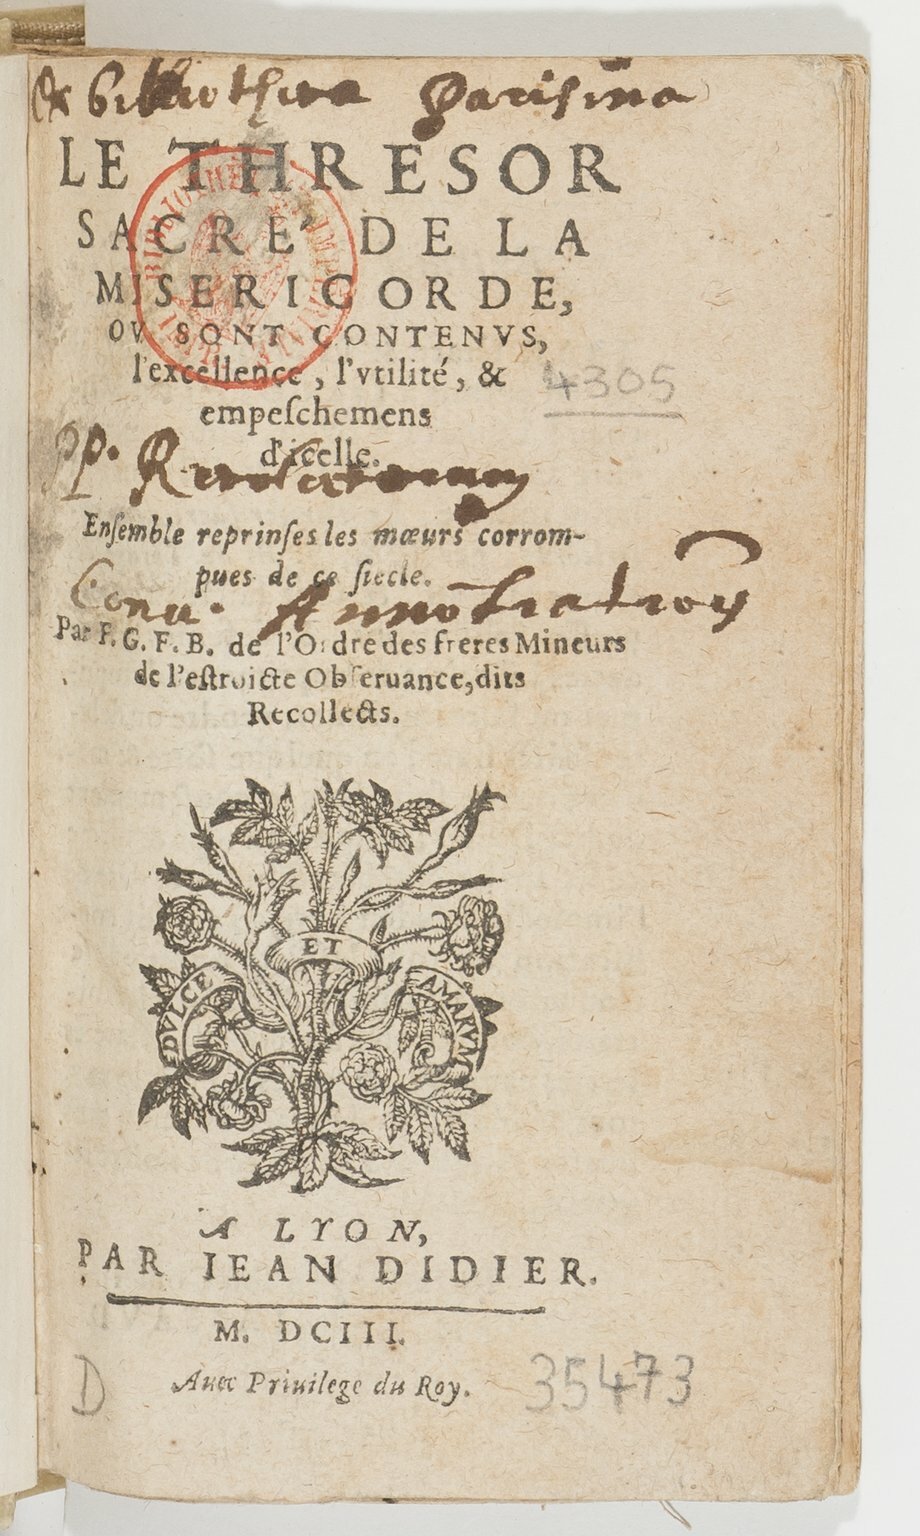 Ex bibliotheca Parisina
LE THRESOR
SACRE' DE LA
MISERICORDE,
OV SONT CONTENVS,
l'excellence, l'vtilité, &
4305
empeſchemens
d'icelle.
PP. Recolectorum
Enſemble reprinſes les mœurs corrom-
pues de ce ſiecle.
Conu.
Par F. G. F. B. de l'Ordre des freres Mineurs
de l'eſtroicte Obſeruance, dits
Recollects.
ET
DVLCE
AMARVM
A LYON,
PAR IEAN DIDIER.
M. DCIII.
Auec Priuilege du Roy.
D
35473